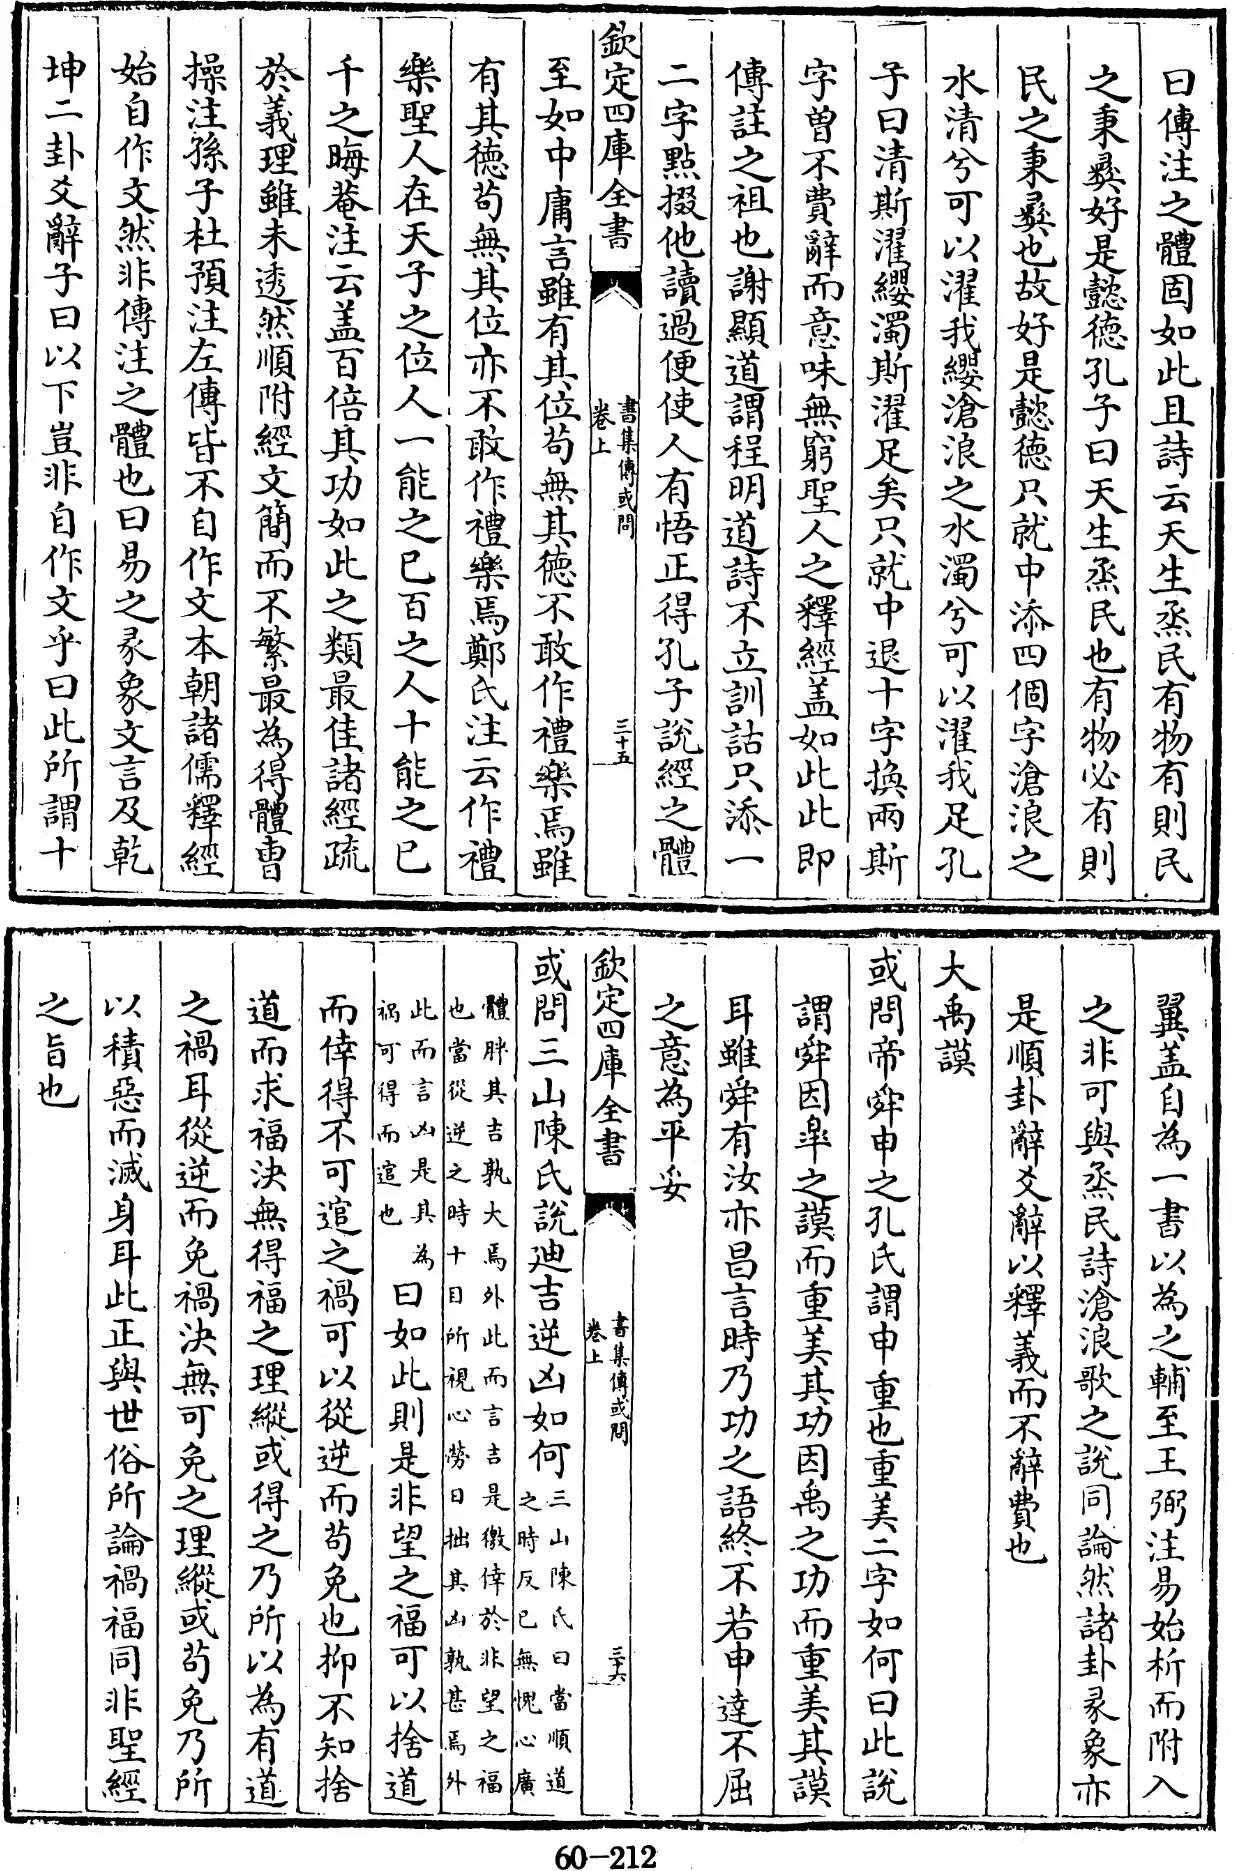 曰傳注之體固如此且詩云天生烝民有物有則民
之秉彛好是懿德孔子曰天生烝民也有物必有則
民之秉彛也故好是懿德只就中添四個字滄浪之
水清兮可以濯我纓滄浪之水濁兮可以濯我足孔
子曰清斯濯纓濁斯濯足矣只就中退十字換兩斯
字曽不費辭而意味無窮聖人之釋經盖如此此即
傳註之祖也謝顯道謂程明道詩不立訓詁只添一
二字點掇他讀過便使人有悟正得孔子説經之體
欽定四庫全書
書集傳或問
卷上
三十五
至如中庸言雖有其位苟無其德不敢作禮樂焉雖
有其德苟無其位亦不敢作禮樂焉鄭氏注云作禮
樂聖人在天子之位人一能之已百之人十能之已
千之晦菴注云盖百倍其功如此之類最佳諸經疏
於義理雖未透然順附經文簡而不繁最為得體曹
操注孫子杜預注左傳皆不自作文本朝諸儒釋經
始自作文然非傳注之體也曰易之彖象文言及乾
坤二卦爻辭子曰以下豈非自作文乎曰此所謂十
翼盖自為一書以為之輔至王弼注易始析而附入
之非可與烝民詩滄浪歌之説同論然諸卦彖象亦
是順卦辭爻辭以釋義而不辭費也
大禹謨
或問帝舜申之孔氏謂申重也重美二字如何曰此説
謂舜因臯之謨而重美其功因禹之功而重美其謨
耳雖舜有汝亦昌言時乃功之語終不若申達不屈
之意為平妥
欽定四庫全書
書集傳或問
卷上
三十六
或問三山陳氏說廸吉逆凶如何三山陳氏曰當順道
之時反已無愧心廣
體胖其吉孰大焉外此而言吉是徼倖於非望之福
也當從逆之時十目所視心勞日拙其凶孰甚焉外
此而言凶是其為
禍可得而逭也曰如此則是非望之福可以捨道
而倖得不可逭之禍可以從逆而苟免也抑不知捨
道而求福決無得福之理縱或得之乃所以為有道
之禍耳從逆而免禍決無可免之理縱或苟免乃所
以積惡而滅身耳此正與世俗所論禍福同非聖經
之旨也
60-212